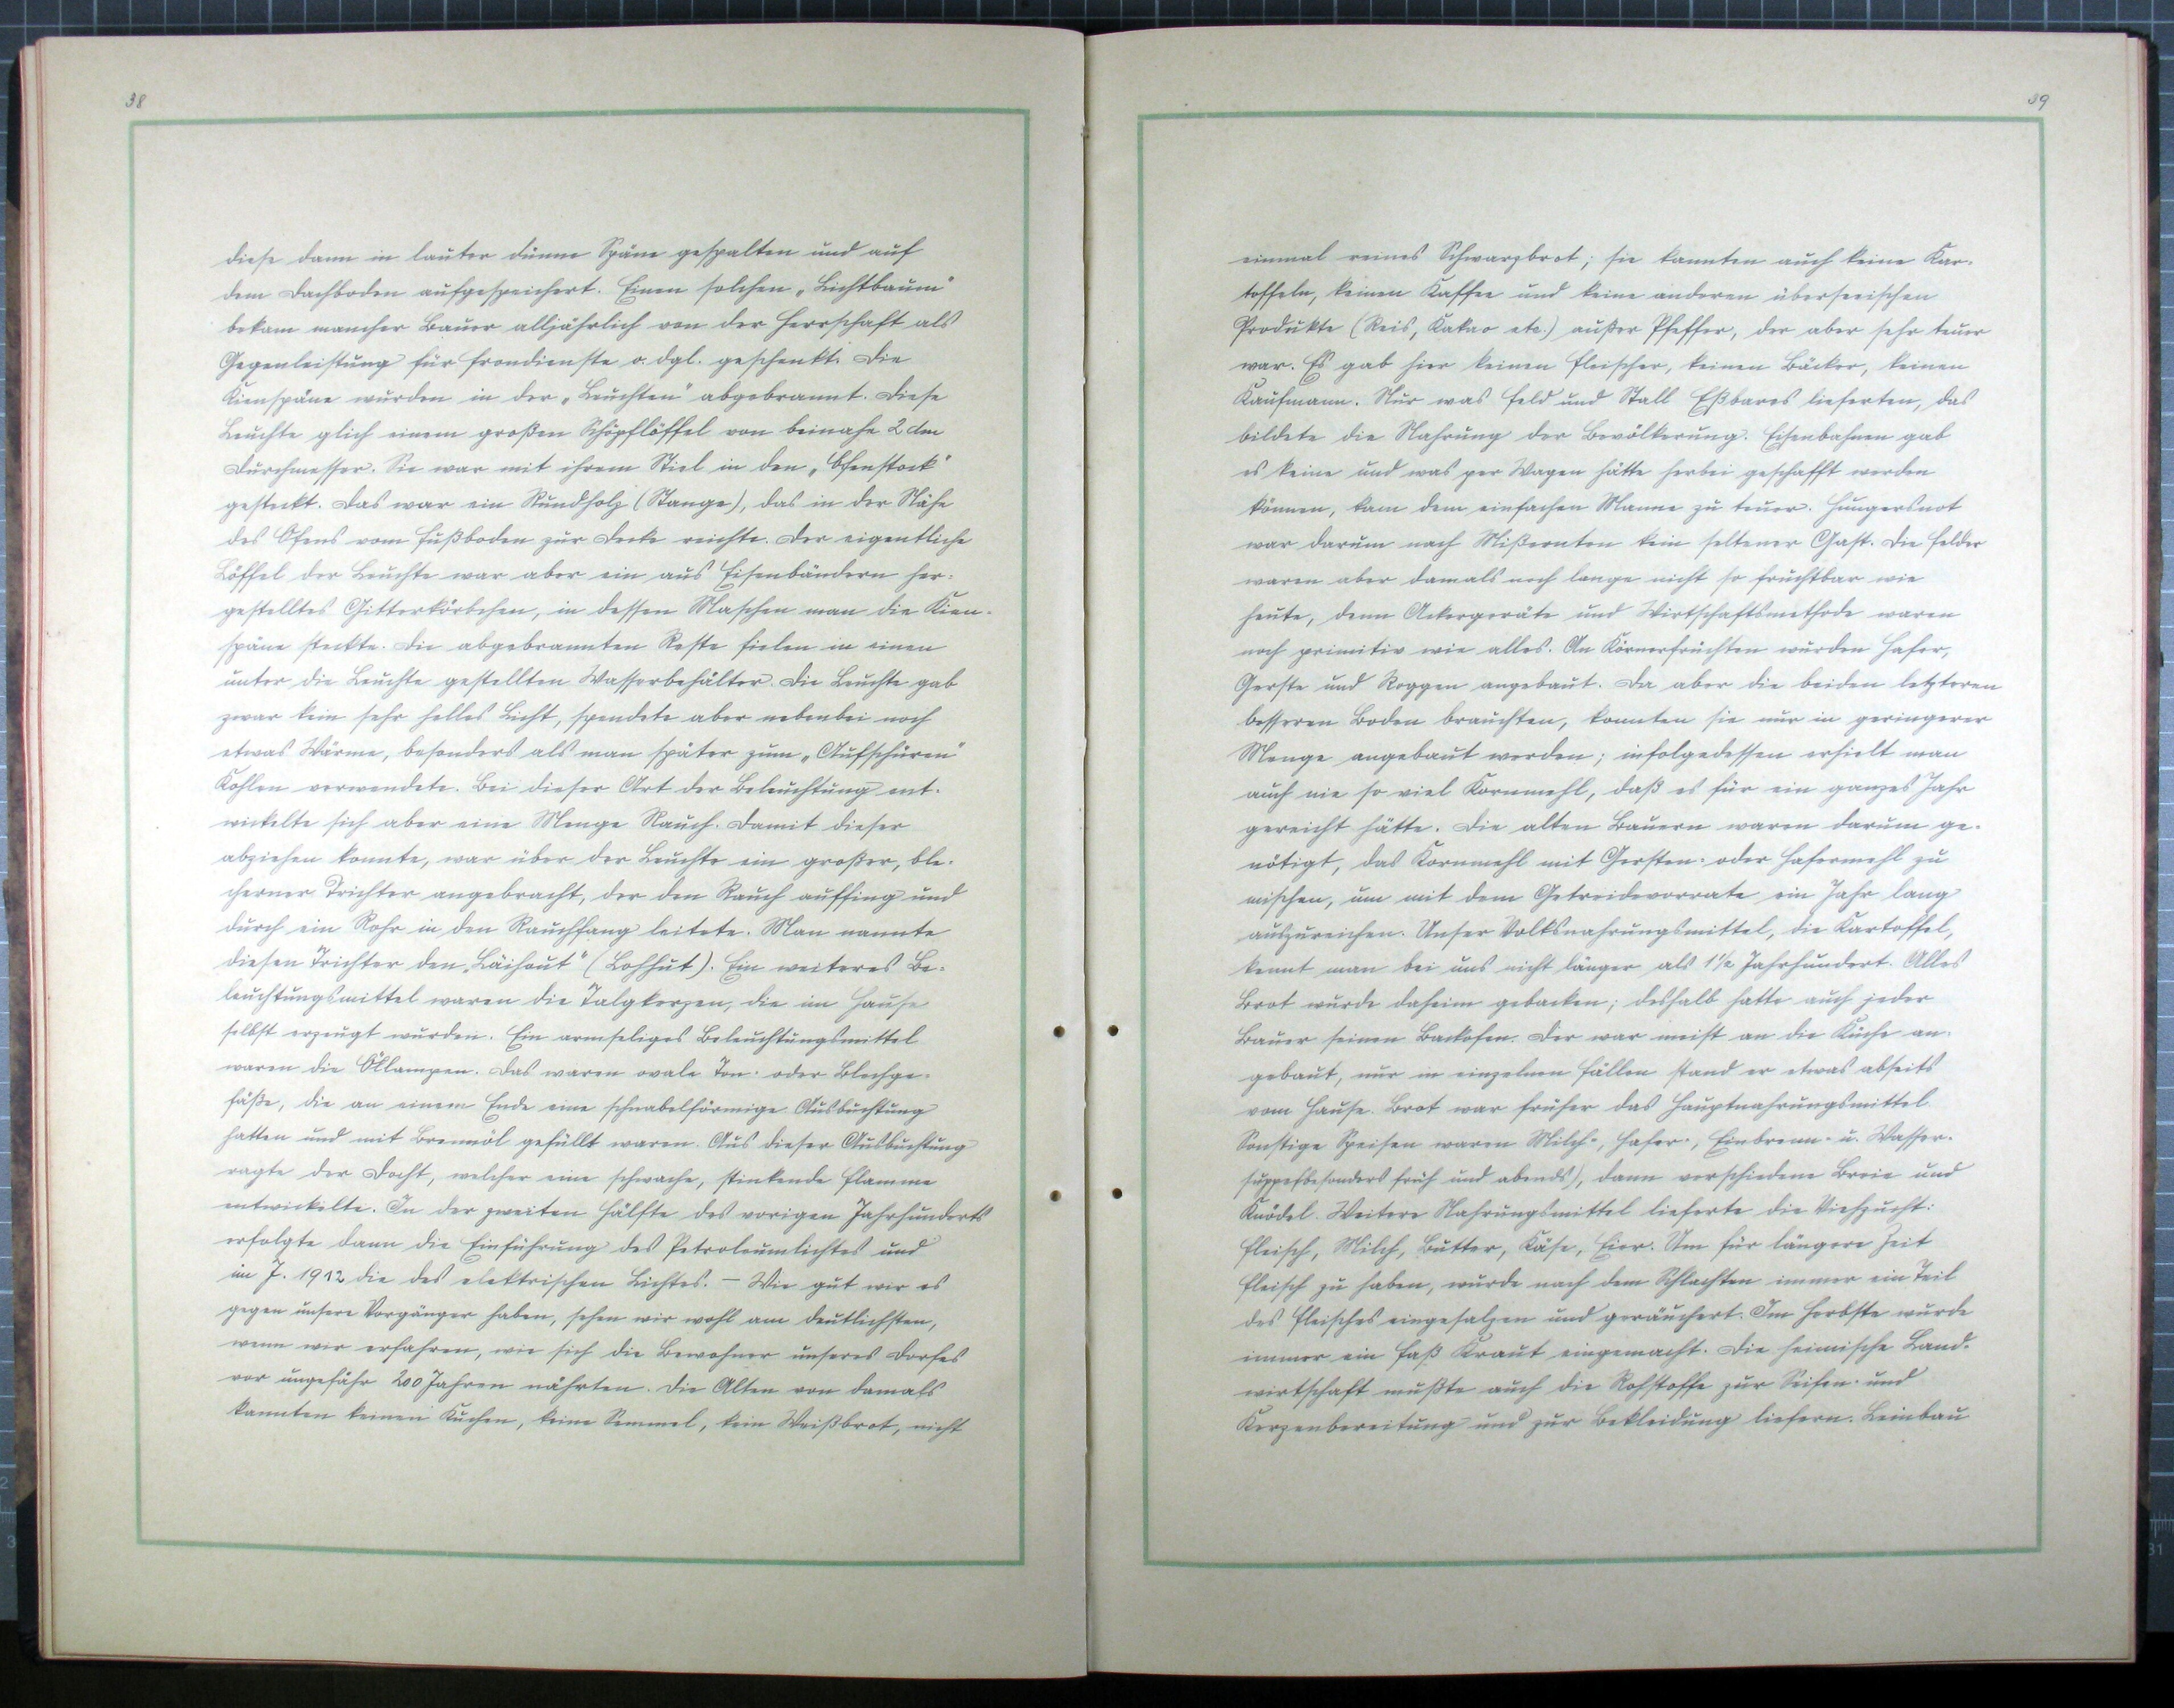 38
diese dann in lauter dünne Späne gespalten und auf
dem Dachboden aufgespeichert. Einen solchen „Lichtbaum"
bekam mancher Bauer alljährlich von der Herrschaft als
Gegenleistung für Frondienste o. dgl. geschenkt. Die
Kienspäne wurden in der „Leuchten" abgebrannt. Diese
Leuchte glich einem großen Schöpflöffel von beinahe 2 dm
Durchmesser. Sie war mit ihrem Stiel in den „Ofenstock"
gesteckt. Das war ein Rundholz (Stange), das in der Nähe
des Ofens vom Fußboden zur Decke reichte. Der eigentliche
Löffel der Leuchte war aber ein aus Eisenbändern her-
gestelltes Gitterkörbchen, in dessen Maschen man die Kien-
späne steckte. Die abgebrannten Reste fielen in einen
unter die Leuchte gestellten Wasserbehälter. Die Leuchte gab
zwar kein sehr helles Licht, spendete aber nebenbei noch
etwas Wärme, besonders als man später zum „Aufschüren"
Kohlen verwendete. Bei dieser Art der Beleuchtung ent-
wickelte sich aber eine Menge Rauch. Damit dieser
abziehen konnte, war über der Leuchte ein großer, ble-
cherner Trichter angebracht, der den Rauch auffing und
durch ein Rohr in den Rauchfang leitete. Man nannte
diesen Trichter den „Läihout" (Lohhut). Ein weiteres Be-
leuchtungsmittel waren die Talgkerzen, die im Hause
selbst erzeugt wurden. Ein armseliges Beleuchtungsmittel
waren die Öllampen. Das waren ovale Ton- oder Blechge-
fäße, die an einem Ende eine schnabelförmige Ausbuchtung
hatten und mit Brennöl gefüllt waren. Aus dieser Ausbuchtung
ragte der Docht, welcher eine schwache, stinkende Flamme
entwickelte. In der zweiten Hälfte des vorigen Jahrhunderts
erfolgte dann die Einführung des Petroleumlichtes und
im J. 1912 die des elektrischen Lichtes. – Wie gut wir es
gegen unsere Vorgänger haben, sehen wir wohl am deutlichsten,
wenn wir erfahren, wie sich die Bewohner unseres Dorfes
vor ungefähr 200 Jahren nährten. Die Alten von damals
kannten keinen Kuchen, keine Semmel, kein Weißbrot, nicht
39
einmal reines Schwarzbrot; sie kannten auch keine Kar-
toffeln, keinen Kaffee und keine anderen überseeischen
Produkte (Reis, Kakao etc.) außer Pfeffer, der aber sehr teuer
war. Es gab hier keinen Fleischer, keinen Bäcker, keinen
Kaufmann. Nur was Feld und Stall Eßbares lieferten, das
bildete die Nahrung der Bevölkerung. Eisenbahnen gab
es keine und was per Wagen hätte herbei geschafft werden
können, kam dem einfachen Manne zu teuer. Hungersnot
war darum nach Mißernten kein seltener Gast. Die Felder
waren aber damals noch lange nicht so fruchtbar wie
heute, denn Ackergeräte und Wirtschaftsmethode waren
noch primitiv wie alles. An Körnerfrüchten wurden Hafer,
Gerste und Roggen angebaut. Da aber die beiden letzteren
besseren Boden brauchten, konnten sie nur in geringerer
Menge angebaut werden; infolgedessen erhielt man
auch nie so viel Kornmehl, daß es für ein ganzes Jahr
gereicht hätte. Die alten Bauern waren darum ge-
nötigt, das Kornmehl mit Gersten- oder Hafermehl zu
mischen, um mit dem Getreidevorrate ein Jahr lang
auszureichen. Unser Volksnahrungsmittel, die Kartoffel,
kennt man bei uns nicht länger als 1½ Jahrhundert. Alles
Brot wurde daheim gebacken; deshalb hatte auch jeder
Bauer seinen Backofen. Der war meist an die Küche an-
gebaut, nur in einzelnen Fällen stand er etwas abseits
vom Hause. Brot war früher das Hauptnahrungsmittel.
Sonstige Speisen waren Milch-, Hafer-, Einbrenn- u. Wasser-
suppe (besonders früh und abends), dann verschiedene Breie und
Knödel. Weitere Nahrungsmittel lieferte die Viehzucht:
Fleisch, Milch, Butter, Käse, Eier. Um für längere Zeit
Fleisch zu haben, wurde nach dem Schlachten immer ein Teil
des Fleisches eingesalzen und geräuchert. Im Herbste wurde
immer ein Faß Kraut eingemacht. Die heimische Land-
wirtschaft mußte auch die Rohstoffe zur Seifen- und
Kerzenbereitung und zur Bekleidung liefern. Leinbau